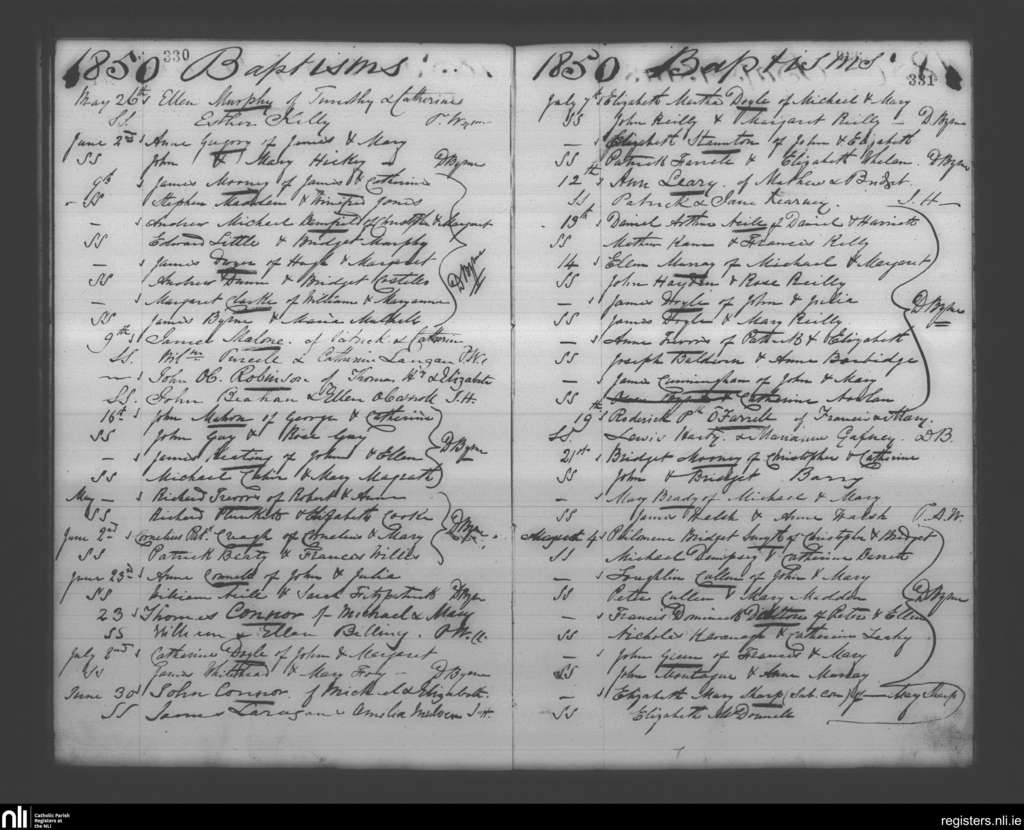 1850 330 Baptisms
May 26th s Ellen Murphy of Timothy & Catherine
SS Esther Kelly P. Wynn
June 2nd s Anne Gregory of James & Mary
SS John & Mary Hickey DByrne
9th s James Mooney of James & Catherine
SS Stephen Madden & Winifred Jones
— s Andrew Michael of & Margaret
SS Edward Little & Bridget Murphy
— s James of Hugh & Margaret
SS Andrew Dunne & Bridget Costello
— s Margaret Clarke of William & Maryanne
SS James Byrne & Maria
DByrne
9th s James Malone of Patrick & Catherine
SS. Wilm Purcell & Catherine Langan
— s John OC. Robinson of Thomas & Elizabeth
SS. John & Ellen J.H.
16th s John Mahon of George & Catherine
SS John Guy & Rose Guy
— s James Keating of John & Ellen
SS Michael & Mary Magrath
DByrne
May — s Richard Trevors of Robert & Anne
SS Richard & Elizabeth Cooke
June 2nd s Cornelius Creagh of Cornelius & Mary
SS Patrick Beaty & Frances Willis
DByrne
June 23rd s Anne Connell of John & Julia
SS William Neill & Sarah Fitzpatrick DByrne
23 s Thomas Connor of Michael & Mary
SS William & Ellen Belling.
July 2nd s Catherine Doyle of John & Margaret
SS James Whitehead & Mary Foy — DByrne
June 30 s John Connor of Michael & Elizabeth
SS James & Amelia J.H.
1850 Baptisms 331
July 7th s Elizabeth Martha Doyle of Michael & Mary
SS John Reilly & Margaret Reilly — DByrne
— s Elizabeth Staunton of John & Elizabeth
SS Patrick Farrell & Elizabeth Whelan DByrne
12th s Ann Leary of Mathew & Bridget
SS Patrick & Jane Kearney. J.H—
13th s Daniel Arthur Neille of Daniel & Harriett
SS Mathew Kane & Frances Kelly
14 s Ellen Murray of Michael & Margaret
SS John Hayden & Rose Reilly
— s James Doyle of John & Julia
SS James Doyle & Mary Reilly
— s Anne of Patrick & Elizabeth
SS Joseph & Anne
— s James Cunningham of John & Mary
SS & Catherine Nowlan
DByrne
19th s Roderick Pk OFarrell of Francis & Mary.
SS. Lewis & Marianne Gafney. D.B.
21st s Bridget Mooney of Christopher & Catherine
SS John & Bridget Barry
— s Mary Brady of Michael & Mary
SS James Walsh & Anne Walsh
August 4 s Philomene Bridget Smyth of Christopher & Bridget
SS Michael Dempsey & Catherine
— s Loughlin Cullen of John & Mary
SS Peter Cullen & Mary Madden
— s Francis Dominick Dalton of Peter & Ellen
SS Nicholas Kavanagh & Catherine Leahy
— s John Green of Francis & Mary
SS John Montague & Anne Murray
DByrne
— s Elizabeth Mary Sharp (sub. con.) of — Mary Sharp
SS Elizabeth McDonnell
nli
Catholic Parish
Registers at
the NLI
registers.nli.ie